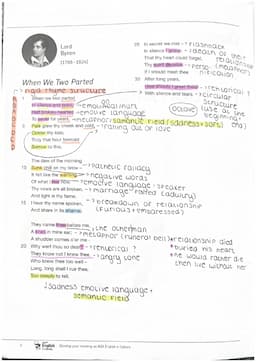 Lord
Byron
(1788–1824)
When We Two Parted
rigid rhyme structure
When we two parted
In silence and tears,
Half broken-hearted
→ emotive language
To sever for years,
→ metaphor
semantic field (sadness + sorr
Pale grew thy cheek and cold,
→ falling out of love
Colder thy kiss;
Truly that hour foretold
Sorrow to this.
The dew of the morning
→ pathetic fallacy
Sunk chill on my brow –
It felt like the warning
→ negative words
Of what I feel now.
→ emotive language - speaker
Thy vows are all broken,
And light is thy fame:
I hear thy name spoken,
→ breakdown of relationship
And share in its shame.
(furious + embarrassed)
They name thee before me,
the other man
A knell in mine ear;
→ metaphor (funeral bell)
→ relationship died
A shudder comes o'er me –
→ buried his heart
Why wert thou so dear?
→ rhetorical?
→ he would rather die
They know not I knew thee,
→ angry tone
then live without her
Who knew thee too well:–
Long, long shall I rue thee,
Too deeply to tell.
↓ sadness emotive language +
semantic field
In secret we met –
In silence I grieve,
→ death of their
relationship
That thy heart could forget,
Thy spirit deceive.
If I should meet thee
After long years,
How should I greet thee?
→ rhetorical?
With silence and tears.
→ circular
structure
use at the
beginning +
end
English